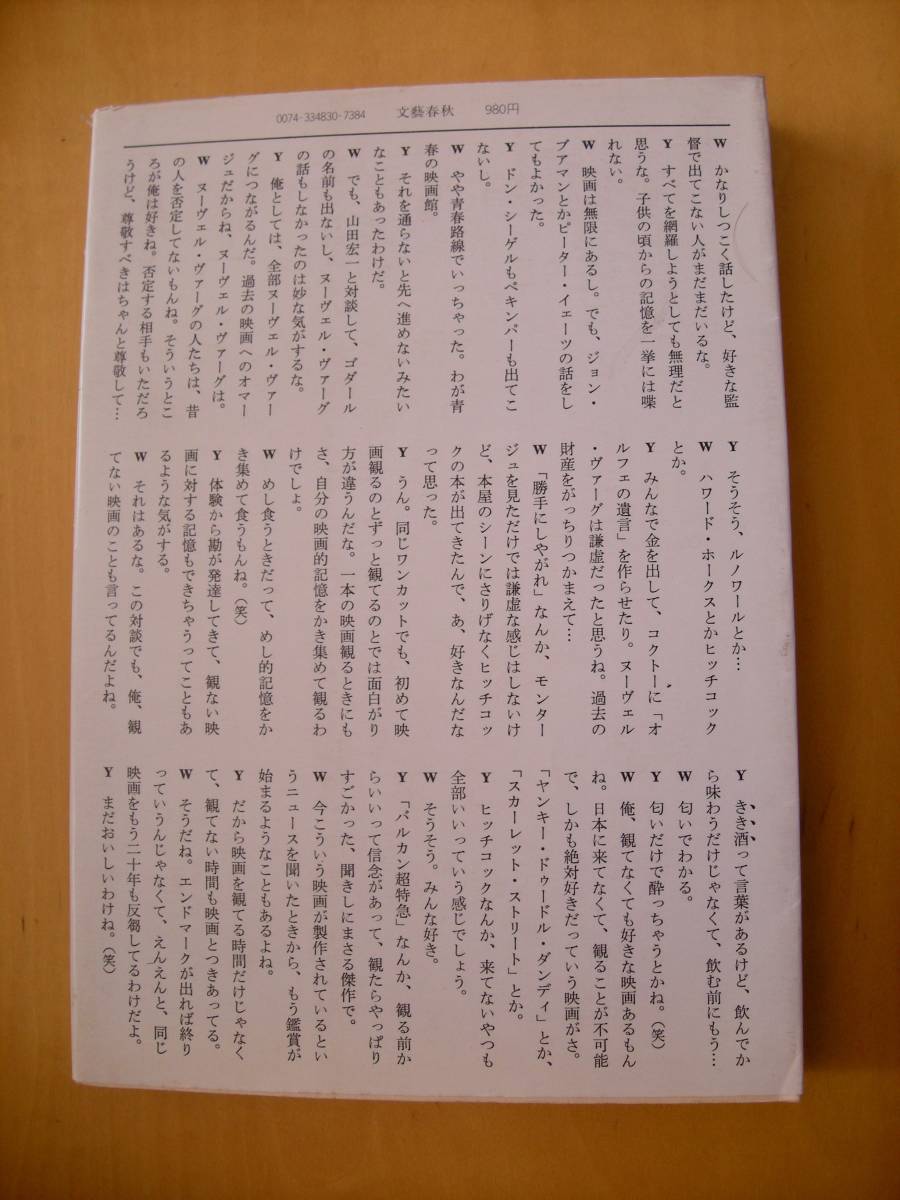 0074-334830-7384 文藝春秋 980円
W かなりしつこく話したけど、好きな監
督で出てこない人がまだまだいるな。
Y すべてを網羅しようとしても無理だと
思うな。子供の頃からの記憶を一挙には喋
れない。
W 映画は無限にあるし。でも、ジョン・
ブアマンとかピーター・イェーツの話をし
てもよかった。
Y ドン・シーゲルもペキンパーも出てこ
ないし。
W やや青春路線でいっちゃった。わが青
春の映画館。
Y それを通らないと先へ進めないみたい
なこともあったわけだ。
W でも、山田宏一と対談して、ゴダール
の名前も出ないし、ヌーヴェル・ヴァーグ
の話もしなかったのは妙な気がするな。
Y 俺としては、全部ヌーヴェル・ヴァー
グにつながるんだ。過去の映画へのオマー
ジュだからね、ヌーヴェル・ヴァーグは。
W ヌーヴェル・ヴァーグの人たちは、昔
の人を否定してないもんね。そういうとこ
ろが俺は好きね。否定する相手もいただろ
うけど、尊敬すべきはちゃんと尊敬して…
Y そうそう、ルノワールとか…
W ハワード・ホークスとかヒッチコック
とか。
Y みんなで金を出して、コクトーに「オ
ルフェの遺言」を作らせたり。ヌーヴェル
・ヴァーグは謙虚だったと思うね。過去の
財産をがっちりつかまえて…
W 「勝手にしやがれ」なんか、モンター
ジュを見ただけでは謙虚な感じはしないけ
ど、本屋のシーンにさりげなくヒッチコッ
クの本が出てきたんで、あ、好きなんだな
って思った。
Y うん。同じワンカットでも、初めて映
画観るのとずっと観てるのとでは面白がり
方が違うんだな。一本の映画観るときにも
さ、自分の映画的記憶をかき集めて観るわ
けでしょ。
W めし食うときだって、めし的記憶をか
き集めて食うもんね。（笑）
Y 体験から勘が発達してきて、観ない映
画に対する記憶もできちゃうってこともあ
るような気がする。
W それはあるな。この対談でも、俺、観
てない映画のことも言ってるんだよね。
Y きき酒って言葉があるけど、飲んでか
ら味わうだけじゃなくて、飲む前にもう…
W 匂いでわかる。
Y 匂いだけで酔っちゃうとかね。（笑）
W 俺、観てなくても好きな映画あるもん
ね。日本に来てなくて、観ることが不可能
で、しかも絶対好きだっていう映画がさ。
「ヤンキー・ドゥードル・ダンディ」とか、
「スカーレット・ストリート」とか。
Y ヒッチコックなんか、来てないやつも
全部いいっていう感じでしょう。
W そうそう。みんな好き。
Y 「バルカン超特急」なんか、観る前か
らいいって信念があって、観たらやっぱり
すごかった、聞きしにまさる傑作で。
W 今こういう映画が製作されているとい
うニュースを聞いたときから、もう鑑賞が
始まるようなこともあるよね。
Y だから映画を観てる時間だけじゃなく
て、観てない時間も映画とつきあってる。
W そうだね。エンドマークが出れば終り
っていうんじゃなくて、えんえんと、同じ
映画をもう二十年も反芻してるわけだよ。
Y まだおいしいわけね。（笑）